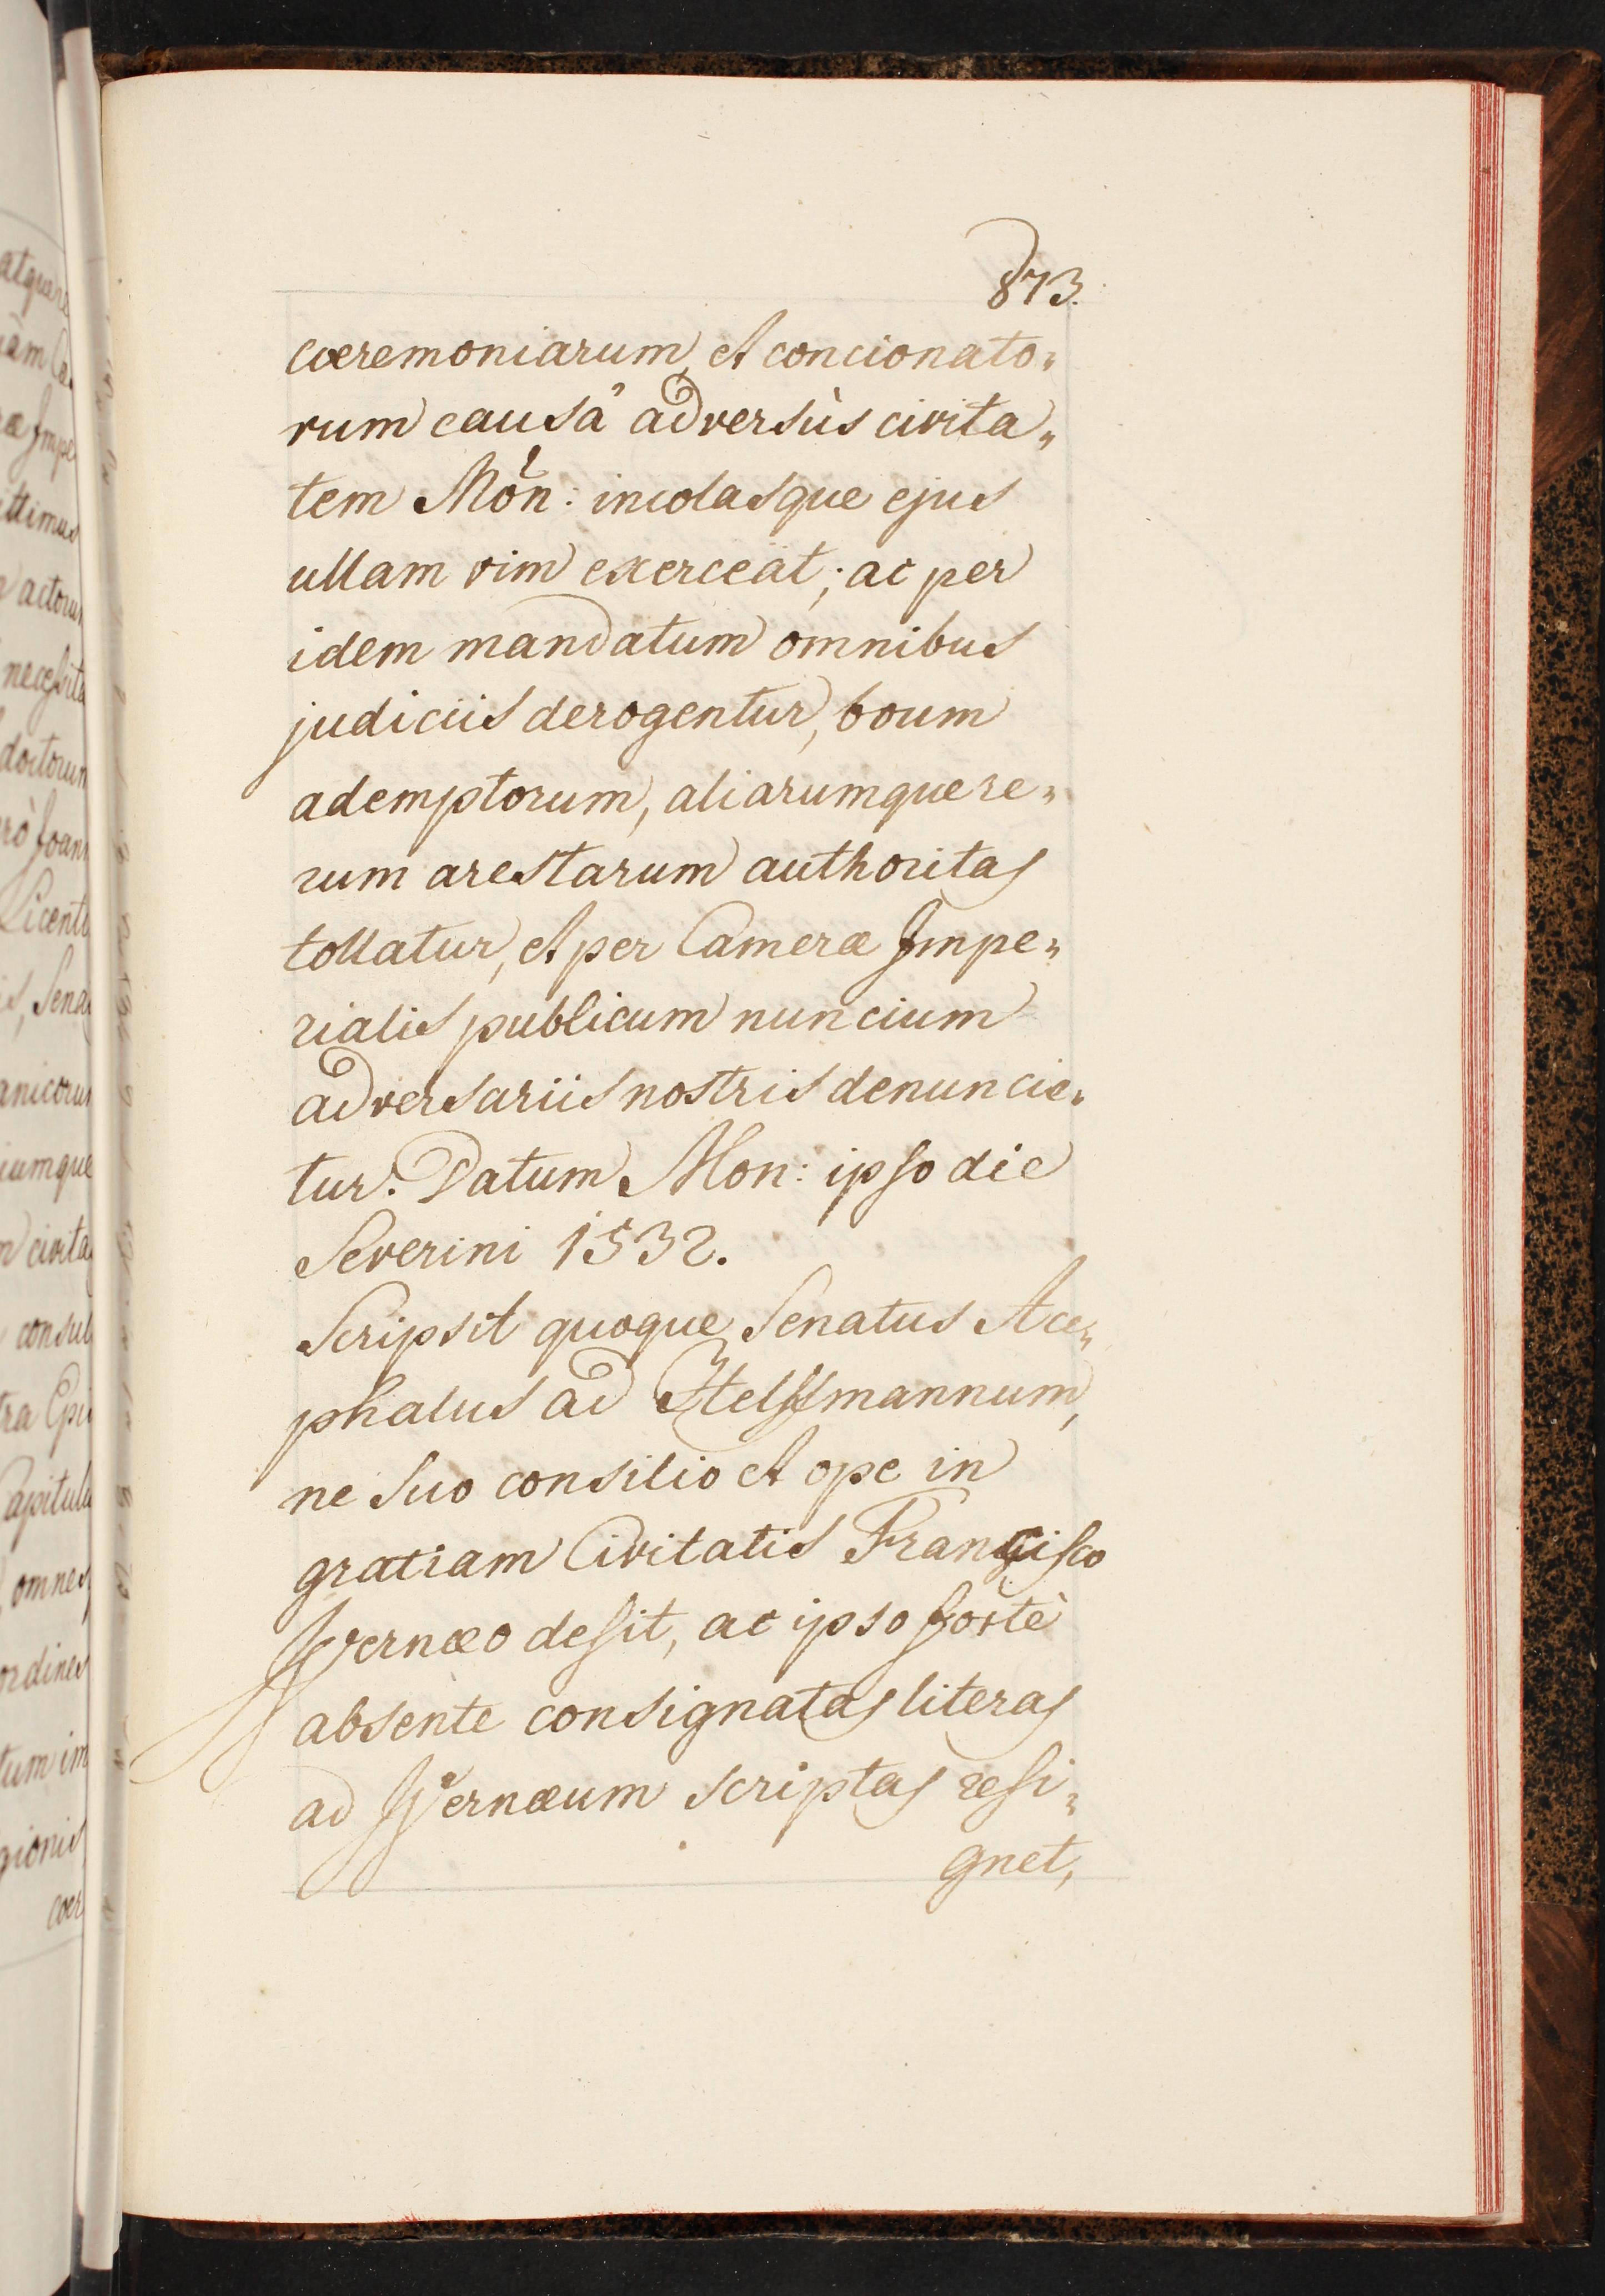 873.
cœremoniarum, et concionato„
rum causâ adversùs civita„
tem Mon: incolasque ejus
ullam vim exerceat; ac per
idem mandatum omnibus
judiciis derogentur, boum
ademptorum, aliarumque re„
rum arestarum authoritas
tollatur, et per Cameræ Impe„
rialis publicum nuncium
adversariis nostris denuncie„
tur. Datum Mon: ipso die
Severini 1532.
Scripsit quoque Senatus Ace„
phalus ad Helssmannum,
ne suo consilio et ope in
gratiam Civitatis Francisco
Wernæo desit, ac ipso fortè
absente consignatas literas
ad Wernæum scriptas resi„
gnet,